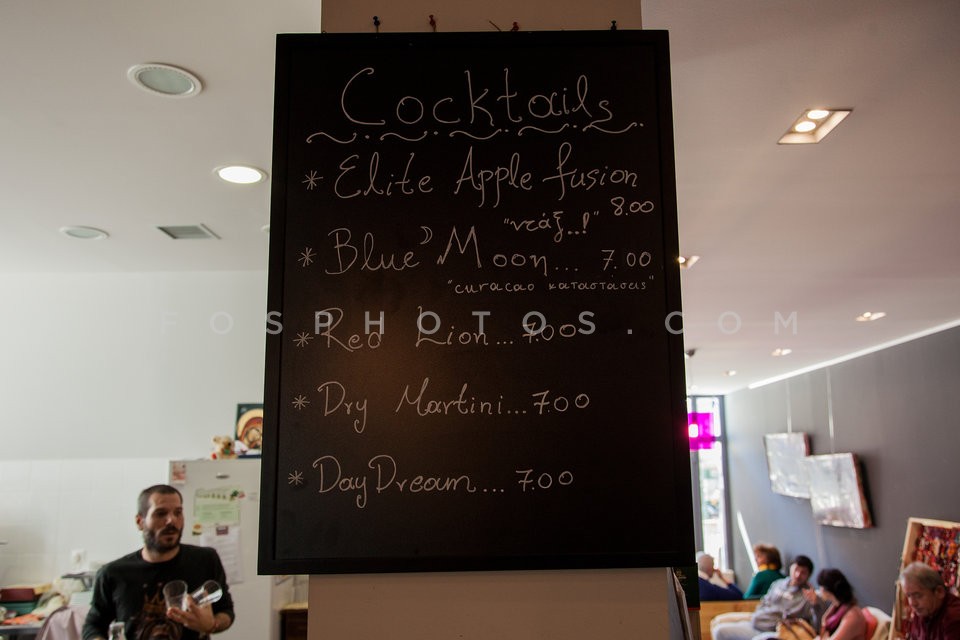 Cocktails
* Elite Apple fusion
"ντάξ..!" 8.00
* Blue Moon... 7.00
"curacao καταστάσεις"
FOSPHOTOS.COM
* Red Lion... 7.00
* Dry Martini... 7.00
* Day Dream... 7.00